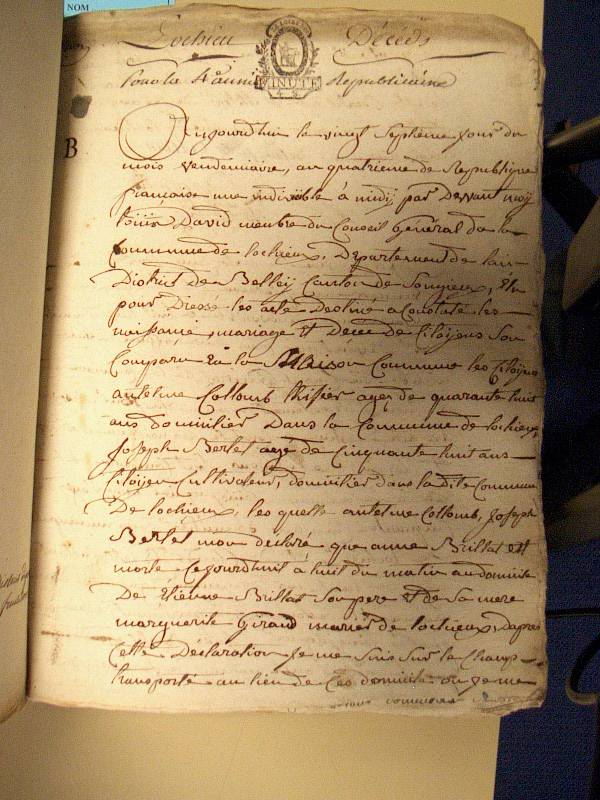 NOM
Lochieu Décéds
MINUTE
Pour la 4e année Republiciéne
B
Aujourdhui le vingt Septiême jour du
mois vendemiaire, an quatrieme de Republique
françoise une indivisible à midy par Devant moy
Louis David membre du Conseil Général de la
Commune de lochieux, Departement de lain
District de Belley Canton de Songieux, Elu
pour Dressé les acte Destiné a Constaté les
naissance, mariage et Décés de Citoÿens Son
Comparu En la Maison Commune les Citoÿens
antelme Collomb thisier agez de quarante huit
ans domicilier Dans la Commune de lochieux,
Joseph Berlet agé de Cinquante huit ans
Citoÿen Cultivateur, domicilier dans la Dite Commune
De lochieux, les quelle antelme Collomb, Joseph
Berlet mon déclaré que anne Brillat est
morte Cejourdhuit à huit du matin au domicile
De Etienne Brillat Son pere et de Sa mere
marguerite Giraud mariés de lochieux, dapres
Cette Déclaration Je me Suis Sur le Champ
transporté au lieu de Ces domicile ou Je me